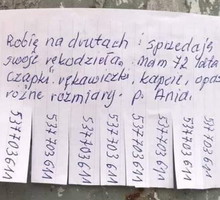 Robię na drutach i sprzedaję
swoje rękodzieła. Mam 72 lata
Czapki, rękawiczki, kapcie, opas
różne rozmiary. p. Ania.
537703611
537703611
537703611
537703611
537703611
537703611
537703611
537703611